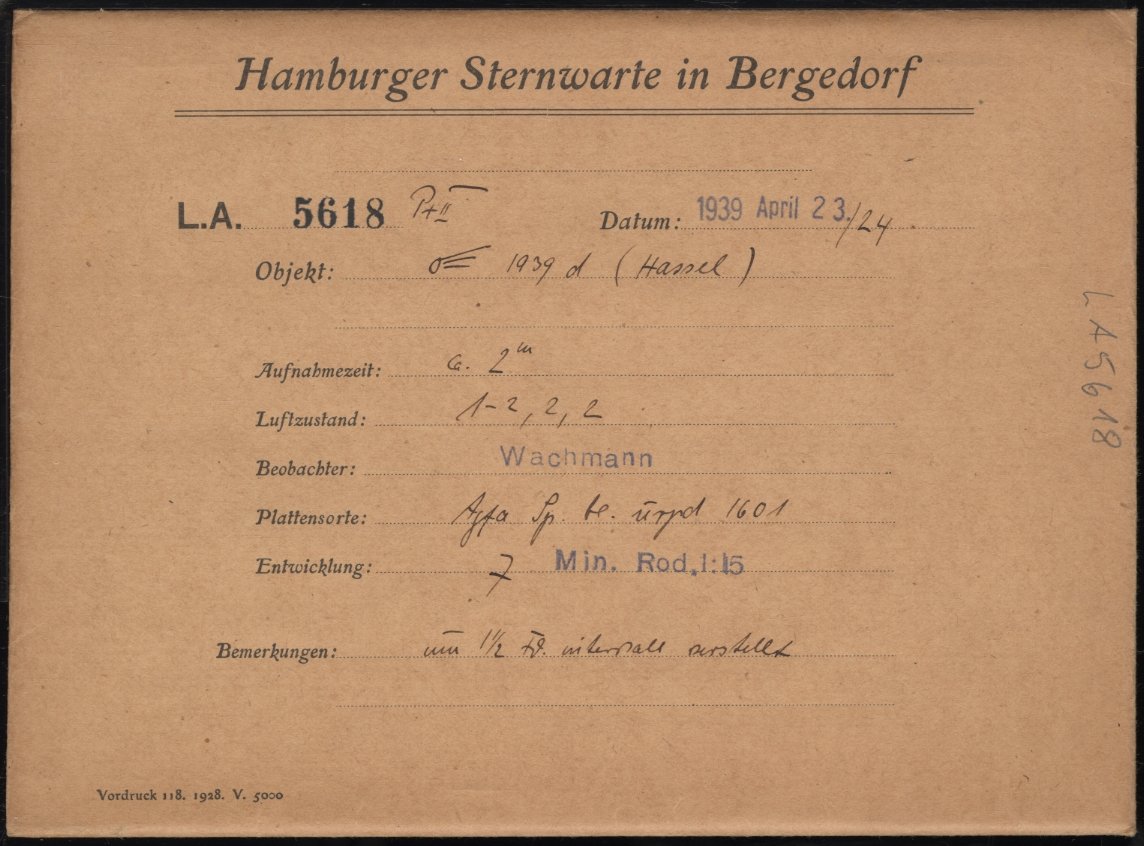 Hamburger Sternwarte in Bergedorf
L.A. 5618 Datum: 1939 April 23./24
Objekt: ☄ 1939 d (Hassel)
Aufnahmezeit: ca. 2ᵐ
Luftzustand: 1-2, 2, 2
Beobachter: Wachmann
Plattensorte: Agfa Sp. bl. 1601
Entwicklung: 7 Min. Rod. 1:15
Bemerkungen: um 1½ intervall verstellt
Vordruck 118. 1928. V. 5000
LA5618